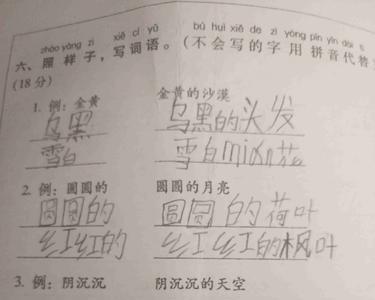 zhào yàng zi xiě cí yǔ bù huì xiě de zì yòng pīn yīn dài
六、照样子，写词语。（不会写的字用拼音代替
（18分）
1. 例：金黄 金黄的沙漠
乌黑 乌黑的头发
雪白 雪白mián花
2. 例：圆圆的 圆圆的月亮
圆圆的 圆圆的荷叶
红红的 红红的枫叶
3. 例：阴沉沉 阴沉沉的天空